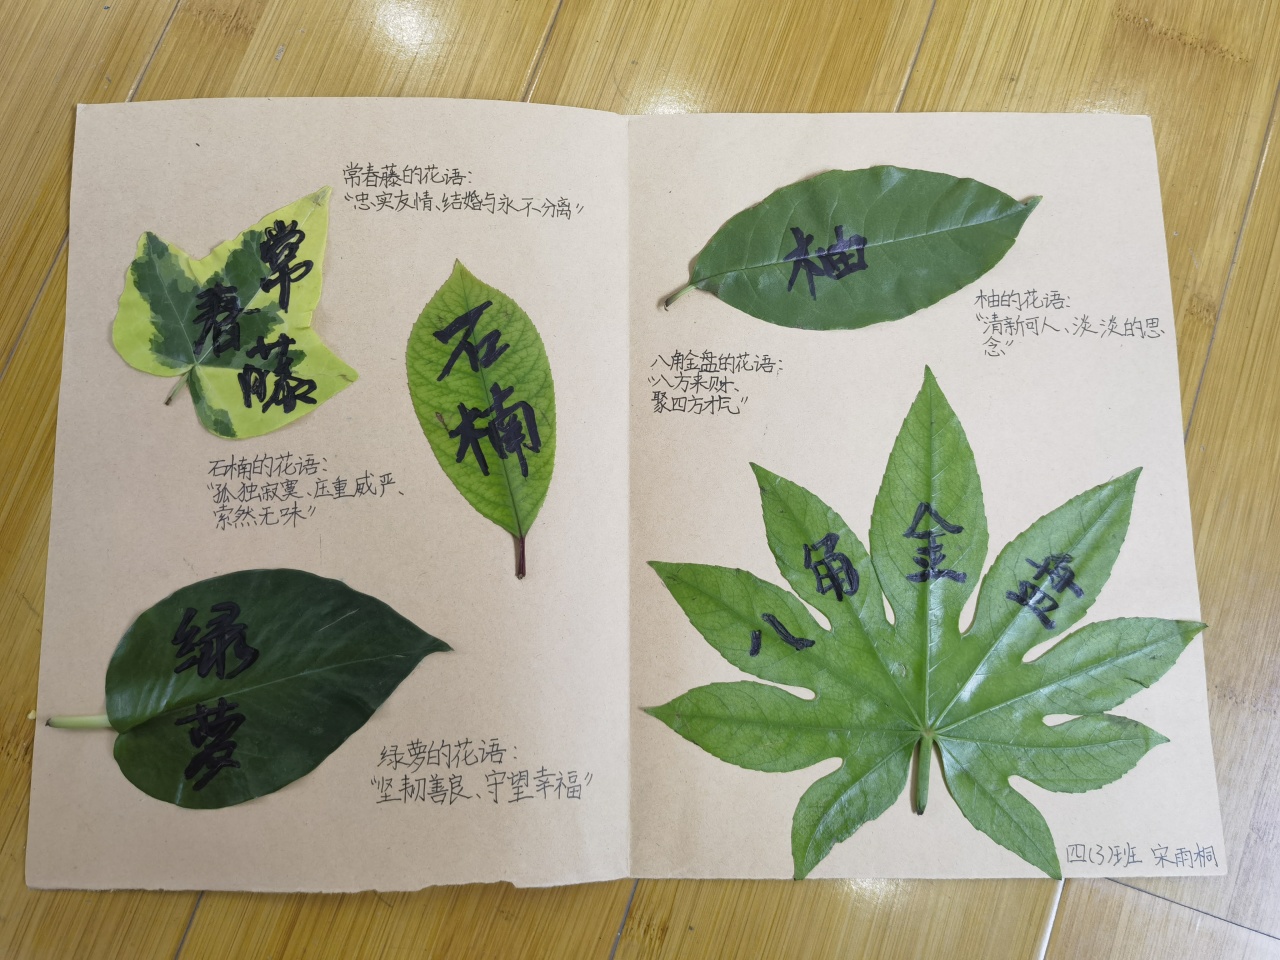 常春藤的花语：
“忠实友情、结婚与永不分离”
常
春
藤
石
楠
石楠的花语：
“孤独寂寞、庄重威严、
索然无味”
绿
萝
绿萝的花语：
“坚韧善良、守望幸福”
柚
柚的花语：
“清新可人、淡淡的思
念”
八角金盘的花语：
“八方来财、
聚四方才气”
八角金盘
四(3)班 宋雨桐